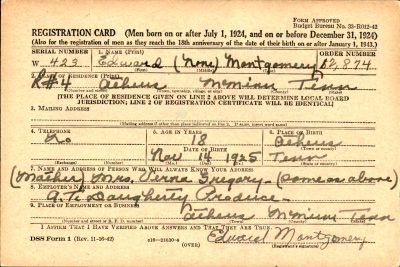 FORM APPROVED
Budget Bureau No. 33-R012-42
REGISTRATION CARD (Men born on or after July 1, 1924, and on or before December 31, 1924)
(Also for the registration of men as they reach the 18th anniversary of the date of their birth on or after January 1, 1943.)
SERIAL NUMBER 1. NAME (Print) ORDER NUMBER
W 423 Edward (None) Montgomery 12,874
(First) (Middle) (Last)
2. PLACE OF RESIDENCE (Print)
R#4 Athens McMinn Tenn
(Number and street) (Town, township, village, or city) (County) (State)
[THE PLACE OF RESIDENCE GIVEN ON LINE 2 ABOVE WILL DETERMINE LOCAL BOARD
JURISDICTION; LINE 2 OF REGISTRATION CERTIFICATE WILL BE IDENTICAL]
3. MAILING ADDRESS
[Mailing address if other than place indicated on line 2. If same, insert word same]
4. TELEPHONE 5. AGE IN YEARS 6. PLACE OF BIRTH
No 18 Athens
DATE OF BIRTH
Nov 14 1925 Tenn
(Exchange) (Number) (Mo.) (Day) (Yr.) (State or country)
7. NAME AND ADDRESS OF PERSON WHO WILL ALWAYS KNOW YOUR ADDRESS
(Mother) Mrs. Verna Gregory (Same as above)
8. EMPLOYER'S NAME AND ADDRESS
Daugherty Produce
9. PLACE OF EMPLOYMENT OR BUSINESS
Athens McMinn Tenn
(Number and street or R. F. D. number) (Town) (County) (State)
I AFFIRM THAT I HAVE VERIFIED ABOVE ANSWERS AND THAT THEY ARE TRUE.
DSS Form 1 (Rev. 11-16-42) (OVER) Edward Montgomery